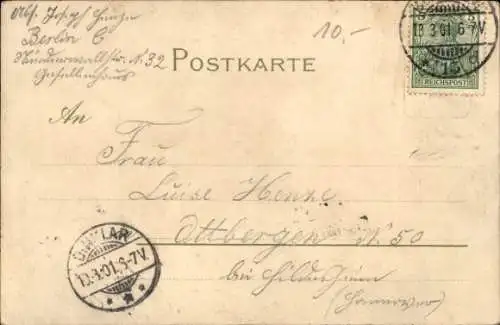 Abs. Joseph Henze
Berlin C
Niederwallstr. N. 32
Gesellenhaus
10.-
POSTKARTE
13.3.01.6-7V.
REICHSPOST
An
Frau
Luise Henze
Ottbergen N. 50
bei Hildesheim
(Hannover)
13.3.01.6-7V.